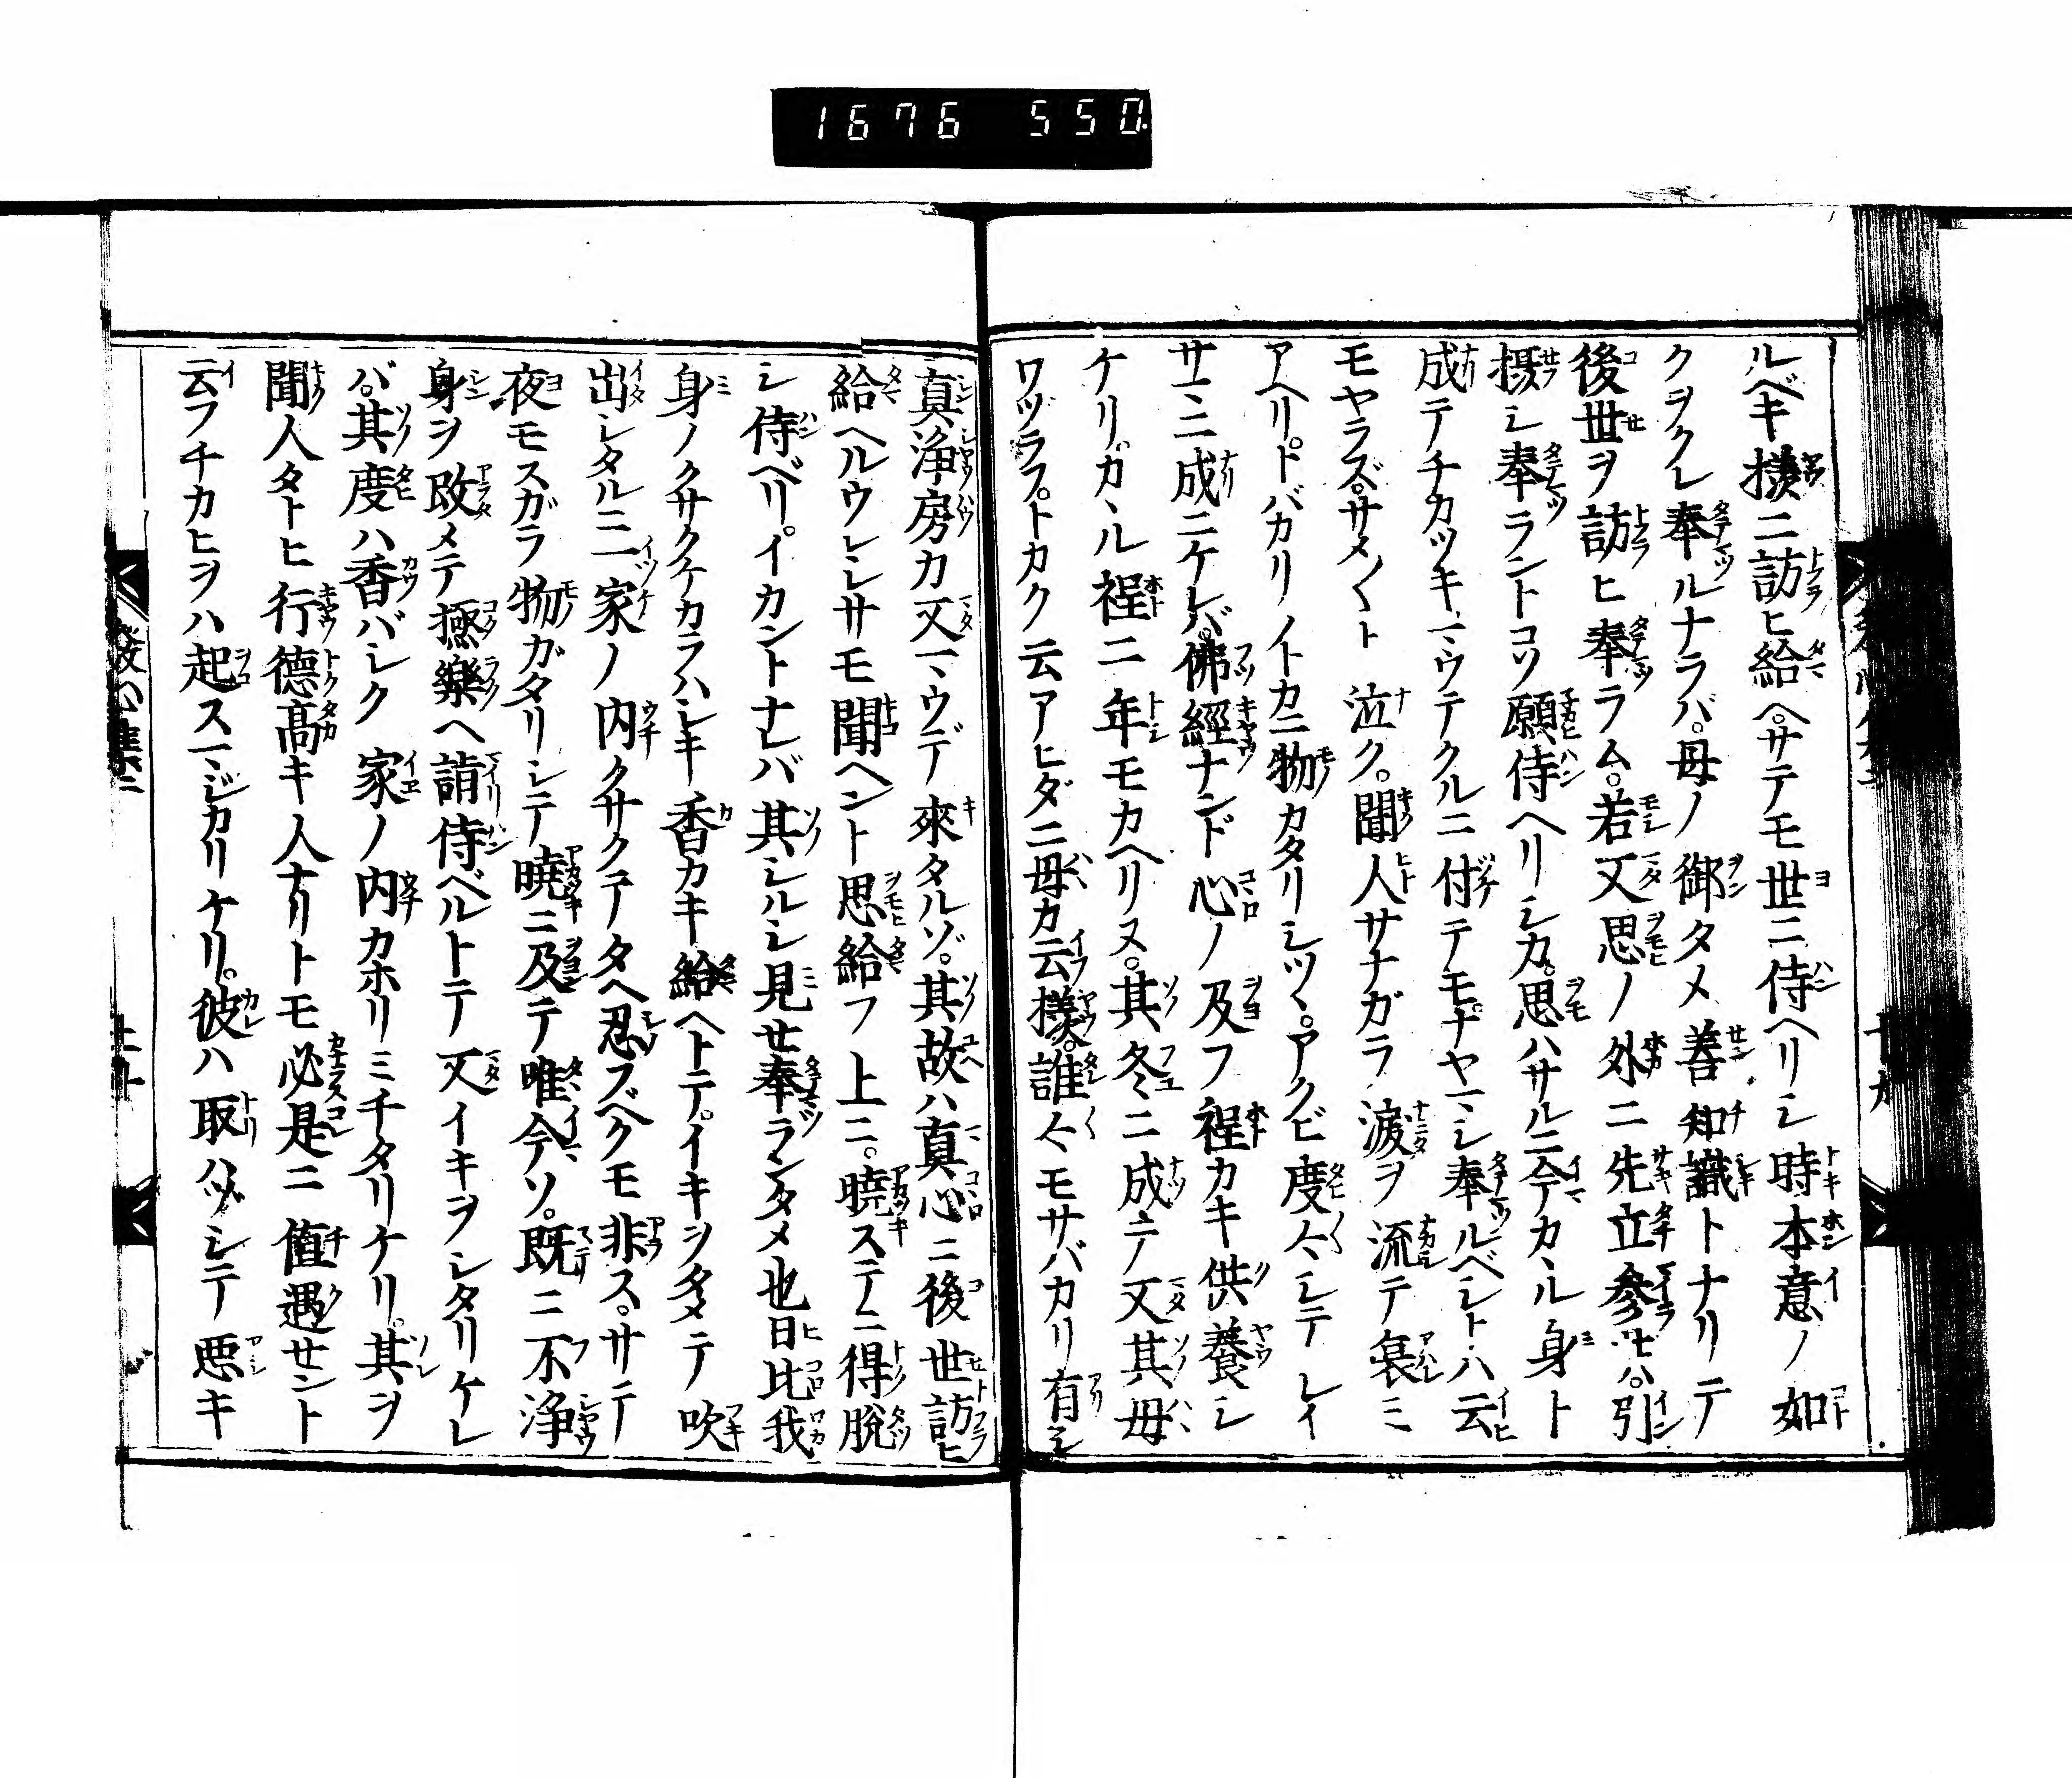 1676 550
ルベキ様ニ訪ヒ給ヘ。サテモ世ニ侍ヘリシ時本意ノ如
クヲクレ奉ルナラバ。母ノ御タメ善知識トナリテ
後世ヲ訪ヒ奉ラム。若又思ノ外ニ先立参セハ。引
摂シ奉ラントコソ願侍ヘリシカ。思ハサルニ今カヽル身ト
成テチカツキマウテクルニ付テモ。ナヤマシ奉ルベシトハ云
モヤラズ。サメ〱ト泣ク。聞人サナガラ涙ヲ流テ哀ミ
アヘリ。トバカリノトカニ物カタリシツヽ。アクビ度々シテレイ
サマニ成ニケレバ。佛經ナンド心ノ及フ程カキ供養シ
ケリ。カヽル程ニ年モカヘリヌ。其冬ニ成テ又其母
ワヅラフ。トカク云アヒダニ母カ云様。誰々モサバカリ有シ
真浄房カ又マウデ來タルゾ。其故ハ真心ニ後世訪ヒ
給ヘルウレシサモ聞ヘント思給フ上ニ。暁ステニ得脱
シ侍ベリ。イカントナレバ其シルシ見せ奉ランタメ也日比我
身ノクサクケカラハシキ香カキ給ヘトテ。イキヲタメテ吹
出シタルニ一家ノ内クサクテタヘ忍ブベクモ非ス。サテ
夜モスガラ物ガタリシテ暁ニ及テ唯今ソ。既ニ不浄
身ヲ改メテ極樂ヘ詣侍ベルトテ又イキヲシタリケレ
バ。其度ハ香バシク家ノ内カホリミチタリケリ。其ヲ
聞人タトヒ行徳高キ人ナリトモ必是ニ值遇せント
云フチカヒヲハ起スマジカリケリ。彼ハ取ハヅシテ悪キ
發心集二